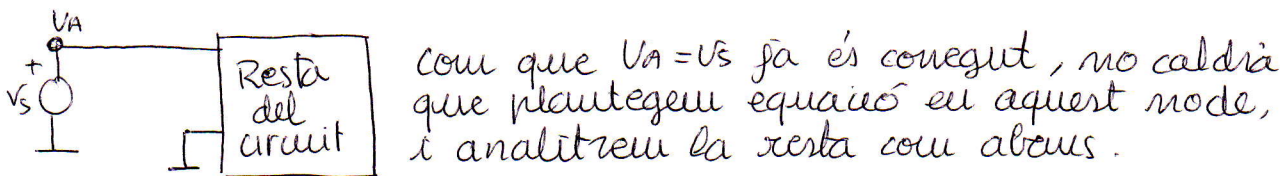 VA
+
Vs
Resta
del
circuit
com que VA = Vs ja és conegut, no caldrà
que plantegem equació en aquest node,
i analitzem la resta com abans.